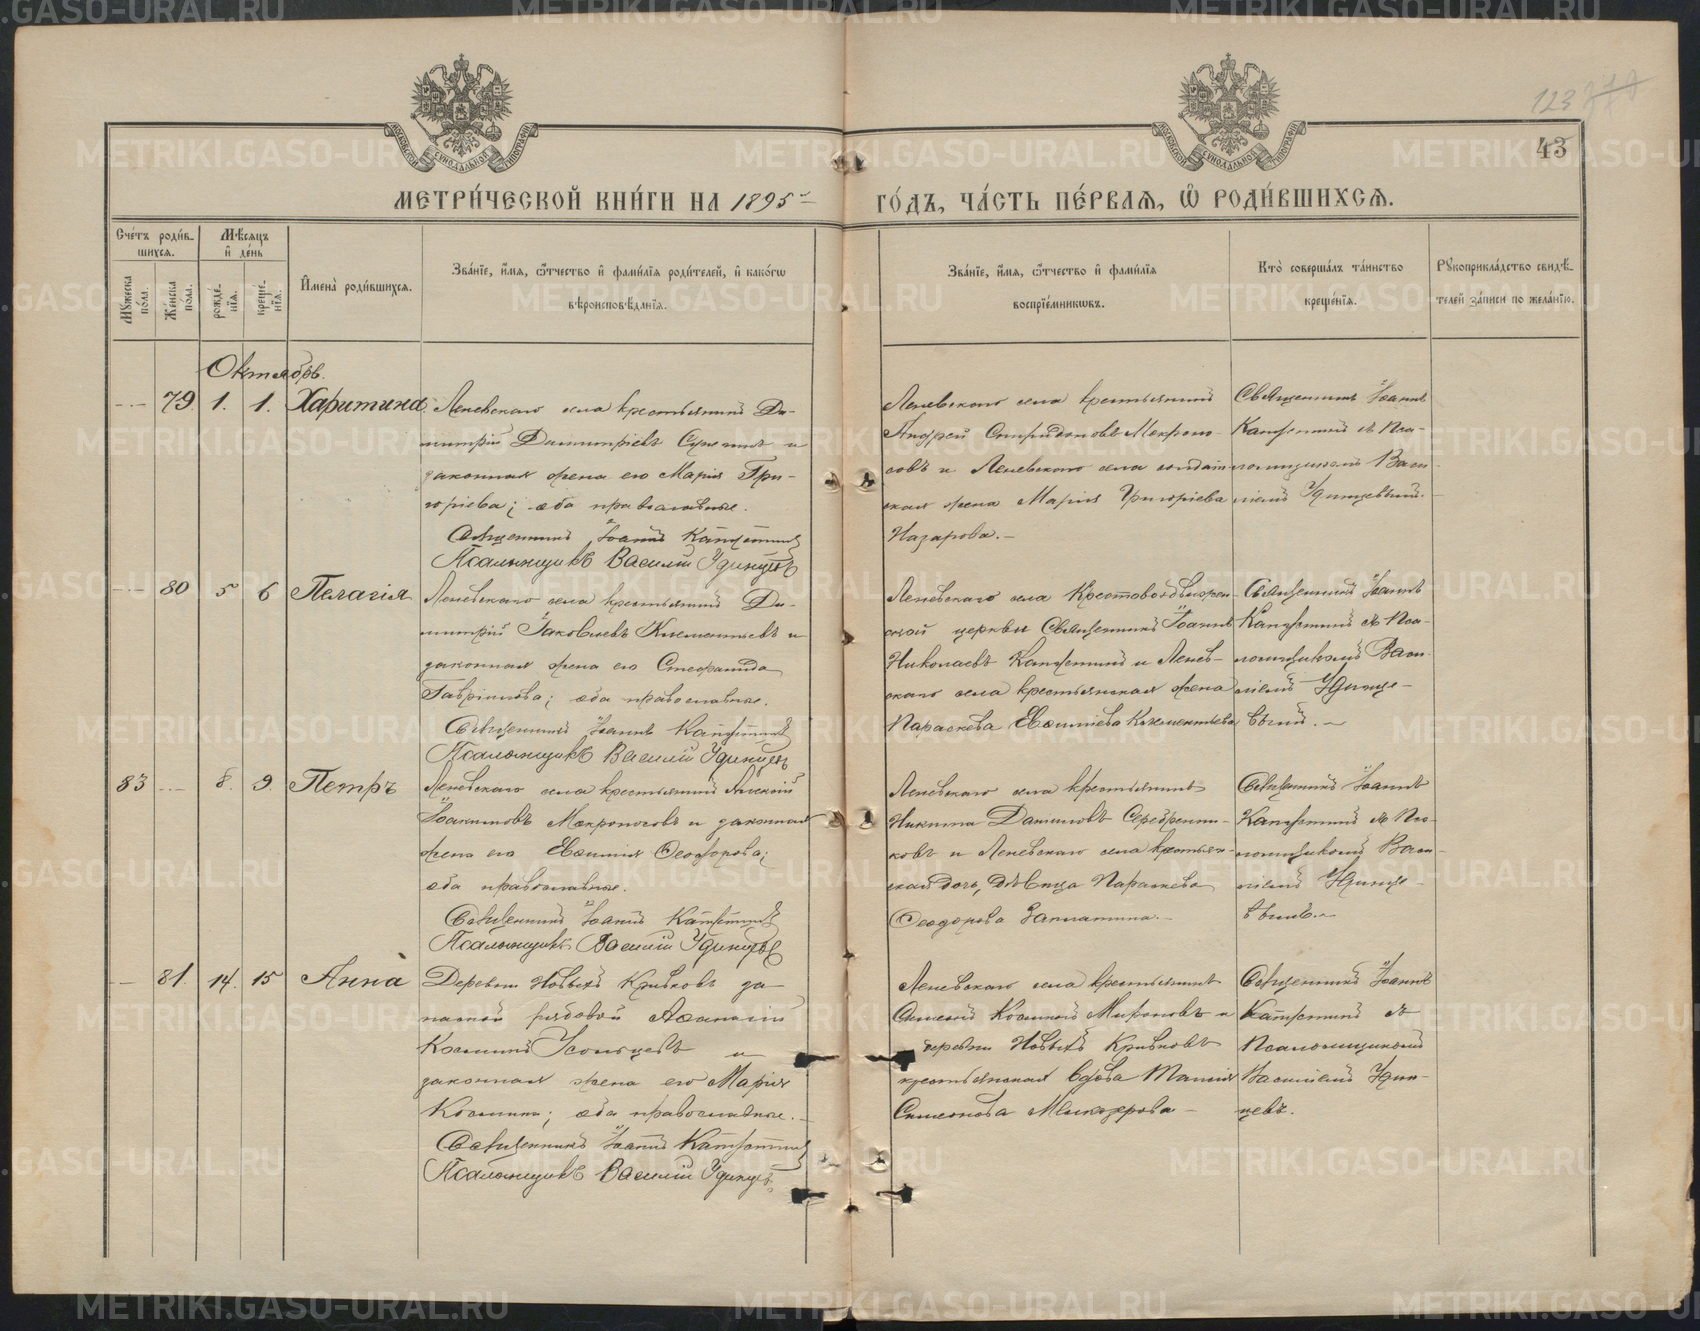 123
43
МЕТРИ́ЧЕСКОЙ КНИ́ГИ НА 1895 ГО́ДЪ, ЧА́СТЬ ПЕ́РВАЯ, Ѽ РОДИ́ВШИХСЯ.
Сче́тъ роди́вшихся.
Мꙋ́жеска пола̀.
Же́нска пола̀.
Мѣ́сяцъ и҆ де́нь
рожде́нїя.
креще́нїя.
И҆мена̀ роди́вшихся.
Зва́нїе, и҆́мя, ѻ҆́тчество и҆ фами́лїя роди́телей, и҆ како́гѡ
вѣроисповѣ́данїя.
Зва́нїе, и҆́мя, ѻ҆́тчество и҆ фами́лїя
воспрїе́мникѡвъ.
Кто̀ соверша́лъ та́инство
креще́нїя.
Рꙋкоприкла́дство свидѣ́телей за́писи по жела́нїю.
Октябрь.
79 1. 1. Харитина
Леневскаго села крестьянинъ Ди-
митрій Димитріевъ и
законная жена его Марія Гри-
горіева; оба православные.
Священникъ Іоаннъ
Псаломщикъ Василій Удинцевъ
Леневскаго села крестьянинъ
Андрей Спиридоновъ Мокроно-
совъ и Леневскаго села солдат-
ская жена Марія Григоріева
Назарова.
Священникъ Іоаннъ
съ Пса-
ломщикомъ Васи-
ліемъ Удинцевымъ.
80 5 6 Пелагія
Леневскаго села крестьянинъ Ди-
митрій Іаковлевъ Клементьевъ и
законная жена его Стефанида
Гавріилова; оба православные.
Священникъ Іоаннъ
Псаломщикъ Василій Удинцевъ
Леневскаго села Крестовоздвижен-
ской церкви Священникъ Іоаннъ
Николаевъ и Ленев-
скаго села крестьянская жена
Параскева Клементьева
Священникъ Іоаннъ
съ Пса-
ломщикомъ Васи-
ліемъ Удинце-
вымъ.
83 8. 9. Петръ
Леневскаго села крестьянинъ Алексій
Іоакимовъ Мокроносовъ и законная
жена его Евфимія Ѳеодорова;
оба православные.
Священникъ Іоаннъ
Псаломщикъ Василій Удинцевъ
Леневскаго села крестьянинъ
Никита Даниловъ Серебренни-
ковъ и Леневскаго села крестьян-
ская дочь, дѣвица Параскева
Ѳеодорова Заплатина.
Священникъ Іоаннъ
съ Пса-
ломщикомъ Васи-
ліемъ Удинце-
вымъ.
81. 14. 15 Анна
Деревни Новыхъ Кривковъ за-
пасной рядовой Аѳанасій
Косминъ Усольцевъ и
законная жена его Марія
Космина; оба православные.
Священникъ Іоаннъ
Псаломщикъ Василій Удинцевъ
Леневскаго села крестьянинъ
Симеонъ Косминъ Мироновъ и
деревни Новыхъ Кривковъ
крестьянская вдова
Симеонова
Священникъ Іоаннъ
съ
Псаломщикомъ
Василіемъ Удин-
цевъ.
METRIKI.GASO-URAL.RU